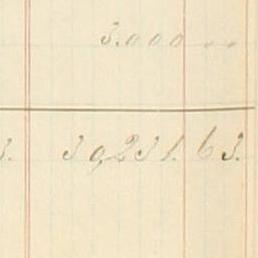 3.000 ..
3. 30,231.63.